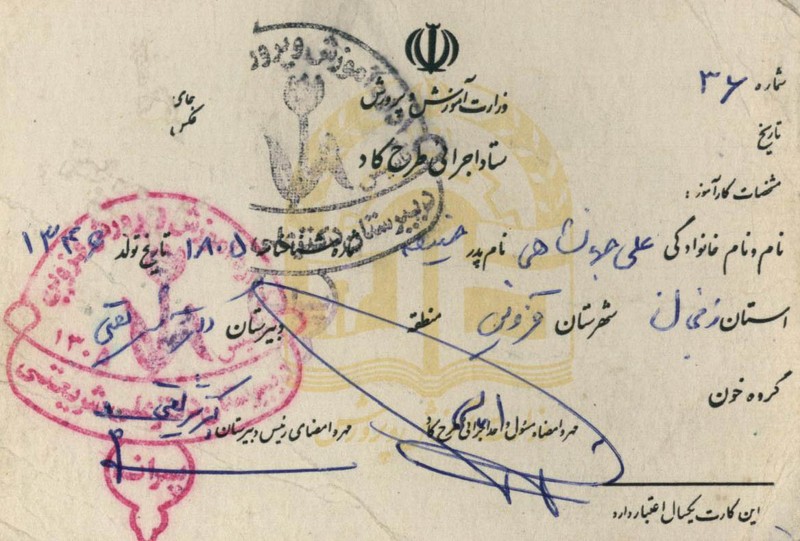 شماره ۳۶
وزارت آموزش و پرورش
جای عکس
تاریخ
ستاد اجرائی طرح کاد
مشخصات کارآموز :
نام و نام خانوادگی علی جهانشاهی نام پدر شماره شناسنامه ۱۸۰۵ تاریخ تولد ۱۳۴۶
استان زنجان شهرستان قزوین منطقه دبیرستان دکتر شریعتی
گروه خون
مهر و امضاء مسئول واحد اجرائی طرح کاد مهر و امضای رئیس دبیرستان
این کارت یکسال اعتبار دارد
اداره آموزش و پرورش
دبیرستان دکتر شریعتی
پسرانه